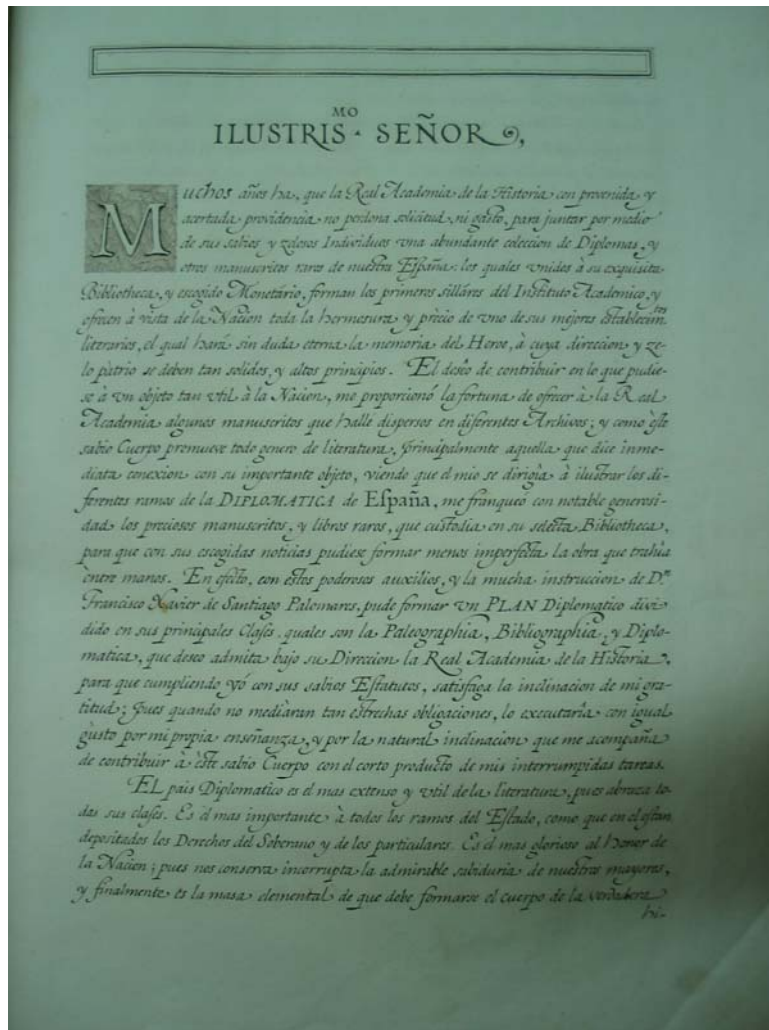 ILUSTRIS.MO SEÑOR,
Muchos años ha, que la Real Academia de la Historia con provenida y
acertada providencia no perdona solicitud, ni gasto, para juntar por medio
de sus sabios y zelosos Individuos vna abundante coleccion de Diplomas, y
otros manuscritos raros de nuestra España: los quales vnidos à su exquisita
Bibliotheca, y escogido Monetário, forman los primeros silláres del Instituto Academico, y
ofrecen à vista de la Nacion toda la hermosura y précio de vno de sus mejores establecim.tos
literarios, el qual hará sin duda eterna la memoria del Heroe, à cuya direccion y ze-
lo pátrio se deben tan solidos, y altos principios. El deséo de contribuir en lo que pudie-
se à vn objeto tan vtil à la Nácion, me proporcionó la fortuna de ofrecer à la Real
Academia algunos manuscritos que hallé dispersos en diferentes Archivos; y como èste
sabio Cuerpo promueve todo genero de literatura, principalmente aquella que dice inme-
diata conexion con su importante objeto, viendo que el mio se dirigìa à ilustrar los di-
ferentes ramos de la DIPLOMATICA de España, me franqueó con notable generosi-
dad los preciosos manuscritos, y libros raros, que custodia en su selecta Bibliotheca,
para que con sus escogidas noticias pudiese formar menos imperfecta la obra que trahìa
èntre manos. En efecto, con estos poderosos auxilios, y la mucha instruccion de D.n
Francisco Xavier de Santiago Palomares, pude formar vn PLAN Diplomatico divi-
dido en sus principales Clases, quales son la Paleographia, Bibliographia, y Diplo-
matica, que deseo admita bajo su Direccion la Real Academia de la Historia,
para que cumpliendo yó con sus sabios Estatutos, satisfaga la inclinacion de mi gra-
titud; pues quando no mediàran tan estrechas obligaciones, lo executarìa con igual
gusto por mi propia enseñanza, y por la natural inclinacion que me acompaña
de contribuir à èste sabio Cuerpo con el corto producto de mis interrumpidas tareas.
EL pais Diplomatico es el mas extenso y vtil de la literatura, pues abraza to-
das sus clases. Es el mas importante à todos los ramos del Estado, como que en el estan
depositados los Derechos del Soberano y de los particulares. Es el mas glorioso al honor de
la Nacion; pues nos conserva incorrupta la admirable sabiduria de nuestros mayores,
y finalmente es la masa elemental de que debe formarse el cuerpo de la verdadera
hi-